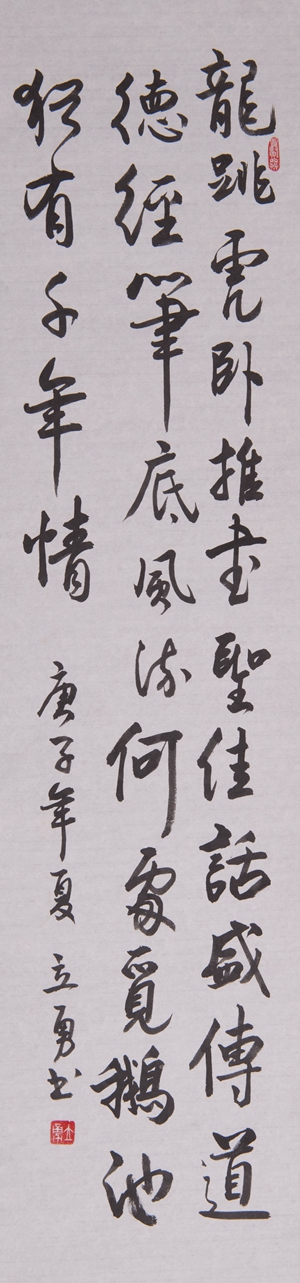 龍跳虎卧推書聖佳話盛傳道
德經筆底風流何處覓鵝池
猶有千年情
庚子年夏立勇书
立勇